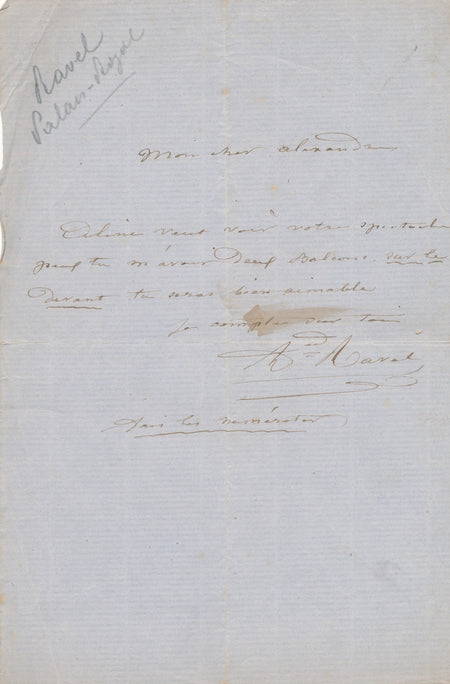 Ravel
Palais-Royal
Mon cher Alexandre
Céline veut voir votre spectacle
peux tu m'avoir Deux Balcons, sur le
devant tu seras bien aimable
Je compte sur toi
Ad Ravel
fais les numéroter